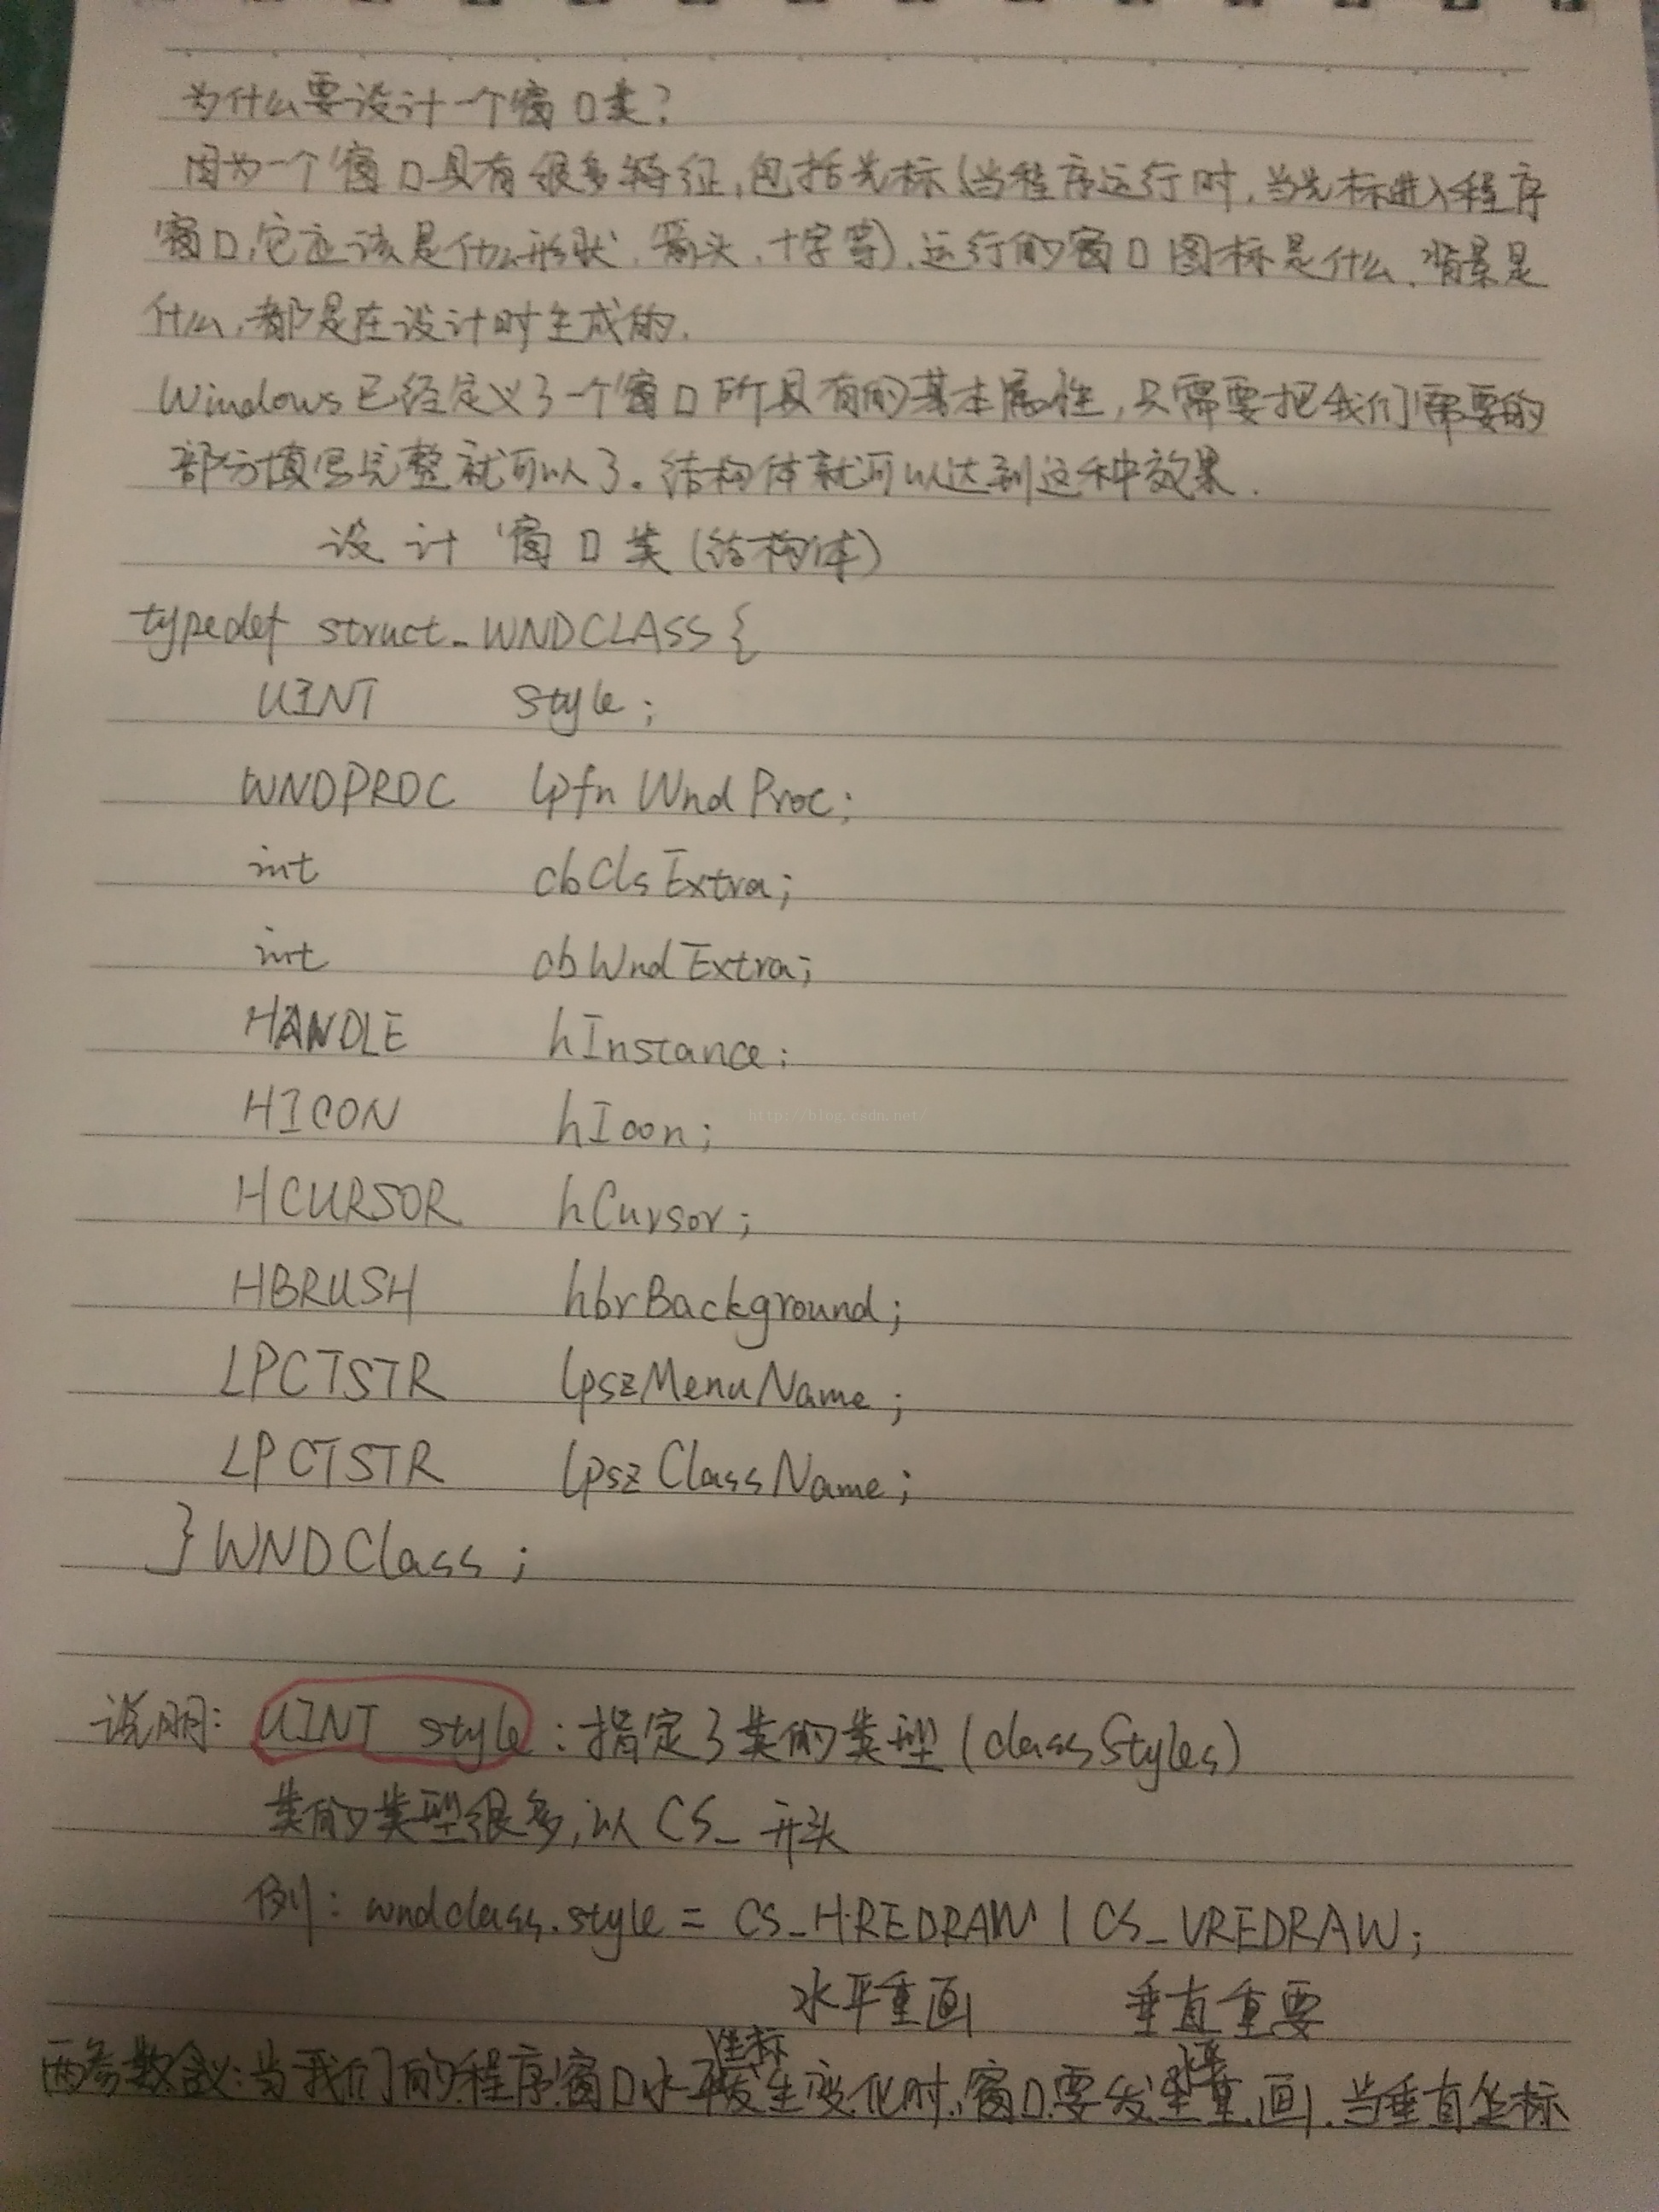 为什么要设计一个窗口类？
因为一个窗口具有很多特征，包括光标（当程序运行时，当光标进入程序
窗口，它应该是什么形状，箭头，十字等），运行的窗口图标是什么，背景是
什么，都是在设计时生成的．
Windows已经定义了一个窗口所具有的基本属性，只需要把我们需要的
部分填写完整就可以了。结构体就可以达到这种效果．
设计窗口类（结构体）
typedef struct_WNDCLASS{
UINT style;
WNDPROC lpfnWndProc;
int cbClsExtra;
int cbWndExtra;
HANDLE hInstance;
HICON hIcon;
http://blog.csdn.net/
HCURSOR hCursor;
HBRUSH hbrBackground;
LPCTSTR lpszMenuName;
LPCTSTR lpszClassName;
}WNDClass;
说明：UINT style：指定了类的类型（classStyles）
类的类型很多，以CS_开头
例：wndclass.style = CS_HREDRAW | CS_VREDRAW;
水平重画 垂直重要
两参数含义：当我们的程序窗口水平坐标发生变化时，窗口要发生水平重画，当垂直坐标